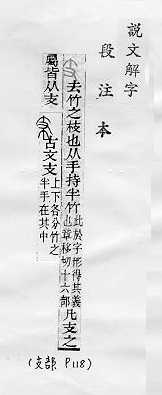 說文解字
段注本
去竹之枝也从手持半竹此於字形得其義也章移切十六部凡支之
屬皆从支 古文支上下各分竹之半手在其中
(支部 P118)